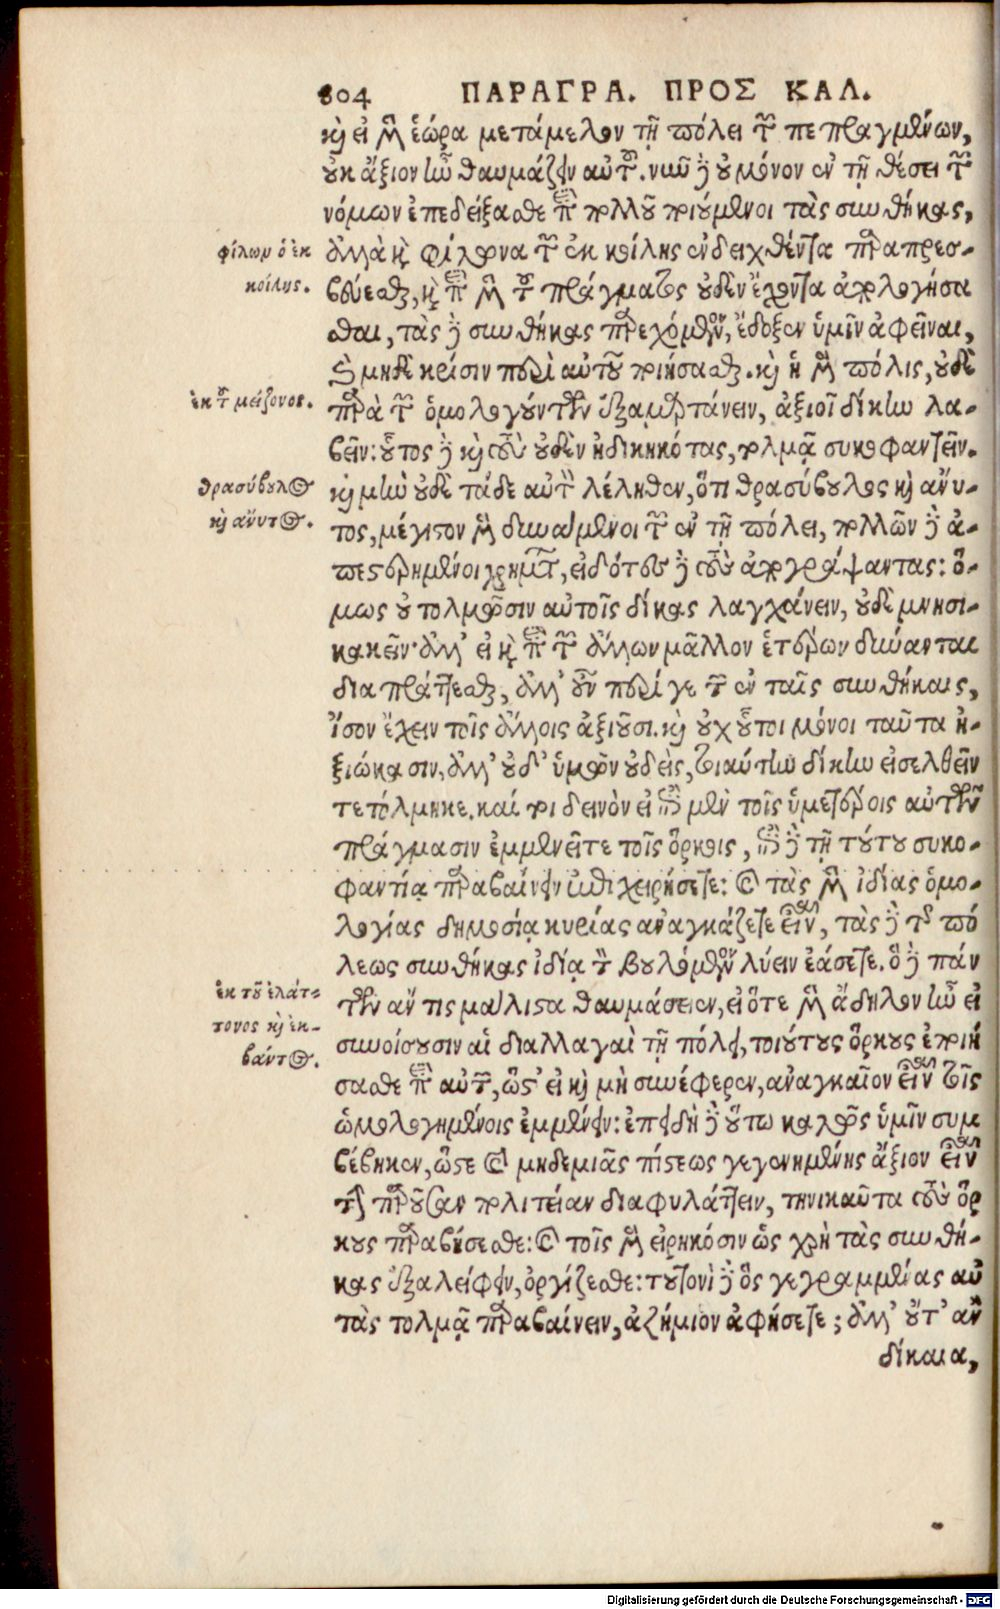 804 ΠΑΡΑΓΡΑ. ΠΡΟΣ ΚΑΛ.
καὶ εἰ μὲν ἑώρα μετάμελον τῇ πόλει τῶν πεπραγμένων,
οὐκ ἄξιον ἦν θαυμάζειν αὐτοῦ. νῦν δὲ οὐ μόνον ἐν τῇ θέσει τῶν
νόμων ἐπεδείξασθε περὶ πολλοῦ ποιούμενοι τὰς συνθήκας,
φίλων ὁ ἐκ
ἀλλὰ καὶ Φίλωνα τὸν ἐκ κοίλης ἐνδειχθέντα παραπρεσ-
κοίλης.
βεύεσθαι, καὶ περὶ μὲν τοῦ πράγματος οὐδὲν ἔχοντα ἀπολογήσα
σθαι, τὰς δὲ συνθήκας παρεχόμενον, ἔδοξεν ὑμῖν ἀφεῖναι,
καὶ μηδὲ κρίσιν περὶ αὐτοῦ ποιήσασθαι. καὶ ἡ μὲν πόλις, οὐδὲ
ἐκ τοῦ μείζονος.
παρὰ τῶν ὁμολογούντων ἐξαμαρτάνειν, ἀξιοῖ δίκην λα-
βεῖν: οὗτος δὲ καὶ τοὺς οὐδὲν ἠδικηκότας, τολμᾷ συκοφαντεῖν.
θρασύβουλος
καὶ μὴν οὐδὲ τάδε αὐτὸν λέληθεν, ὅτι θρασύβουλος καὶ ἄνυ-
καὶ ἄνυτος.
τος, μέγιστον μὲν δυνάμενοι τῶν ἐν τῇ πόλει, πολλῶν δὲ ἀ-
πεστερημένοι χρημάτων, εἰδότες δὲ τοὺς ἀπογράψαντας: ὅ-
μως οὐ τολμῶσιν αὐτοῖς δίκας λαγχάνειν, οὐδὲ μνησι-
κακεῖν· ἀλλ' εἰ καὶ περὶ τῶν ἄλλων μᾶλλον ἑτέρων δύνανται
διαπράττεσθαι, ἀλλ' οὖν περί γε τῶν ἐν ταῖς συνθήκαις,
ἴσον ἔχειν τοῖς ἄλλοις ἀξιοῦσι. καὶ οὐχ οὗτοι μόνοι ταῦτα ἠ-
ξιώκασιν, ἀλλ' οὐδ' ὑμῶν οὐδεὶς, τοιαύτην δίκην εἰσελθεῖν
τετόλμηκε. καί τοι δεινὸν εἰ ἐπὶ μὲν τοῖς ὑμετέροις αὐτῶν
πράγμασιν ἐμμενεῖτε τοῖς ὅρκοις, ἐπὶ δὲ τῇ τούτου συκο-
φαντίᾳ παραβαίνειν ἐπιχειρήσετε: καὶ τὰς μὲν ἰδίας ὁμο-
λογίας δημοσίᾳ κυρίας ἀναγκάζετε εἶναι, τὰς δὲ τῆς πό
λεως συνθήκας ἰδίᾳ τὸν βουλόμενον λύειν ἐάσετε. ὃ δὲ πάν
ἐκ τοῦ ἐλάτ-
των ἄν τις μάλιστα θαυμάσειεν, εἰ ὅτε μὲν ἄδηλον ἦν εἰ
τονος καὶ ἐκ-
συνοίσουσιν αἱ διαλλαγαὶ τῇ πόλει, τοιούτους ὅρκους ἐποιή
βάντος.
σασθε περὶ αὐτῶν, ὥστ' εἰ καὶ μὴ συνέφερεν, ἀναγκαῖον εἶναι τοῖς
ὡμολογημένοις ἐμμένειν: ἐπειδὴ δὲ οὕτω καλῶς ὑμῖν συμ
βέβηκεν, ὥστε καὶ μηδεμιᾶς πίστεως γεγενημένης ἄξιον εἶναι
τὴν παροῦσαν πολιτείαν διαφυλάττειν, τηνικαῦτα τοὺς ὅρ
κους παραβήσεσθε: καὶ τοῖς μὲν εἰρηκόσιν ὡς χρὴ τὰς συνθή-
κας ἐξαλείφειν, ὀργίζεσθε: τουτονὶ δὲ ὃς γεγραμμένας αὐ
τὰς τολμᾷ παραβαίνειν, ἀζήμιον ἀφήσετε; ἀλλ' οὔτ' ἂν
δίκαια,
Digitalisierung gefördert durch die Deutsche Forschungsgemeinschaft - DFG